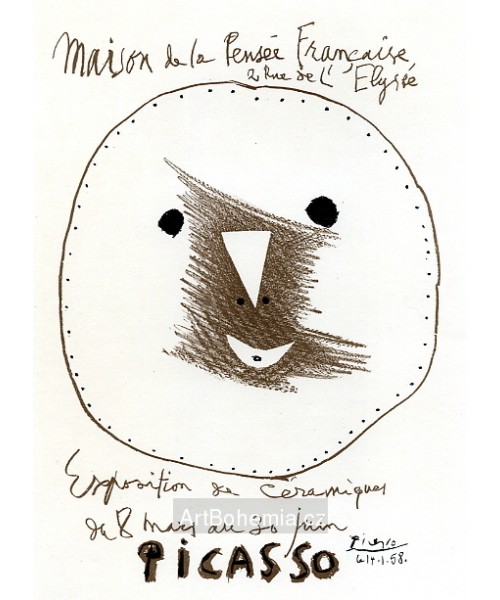 Maison de la Pensée Française
2 Rue de L' Elysée
Exposition de céramiques
du 8 mars au 30 juin
ArtBohemia.cz
PICASSO
Picasso
58.